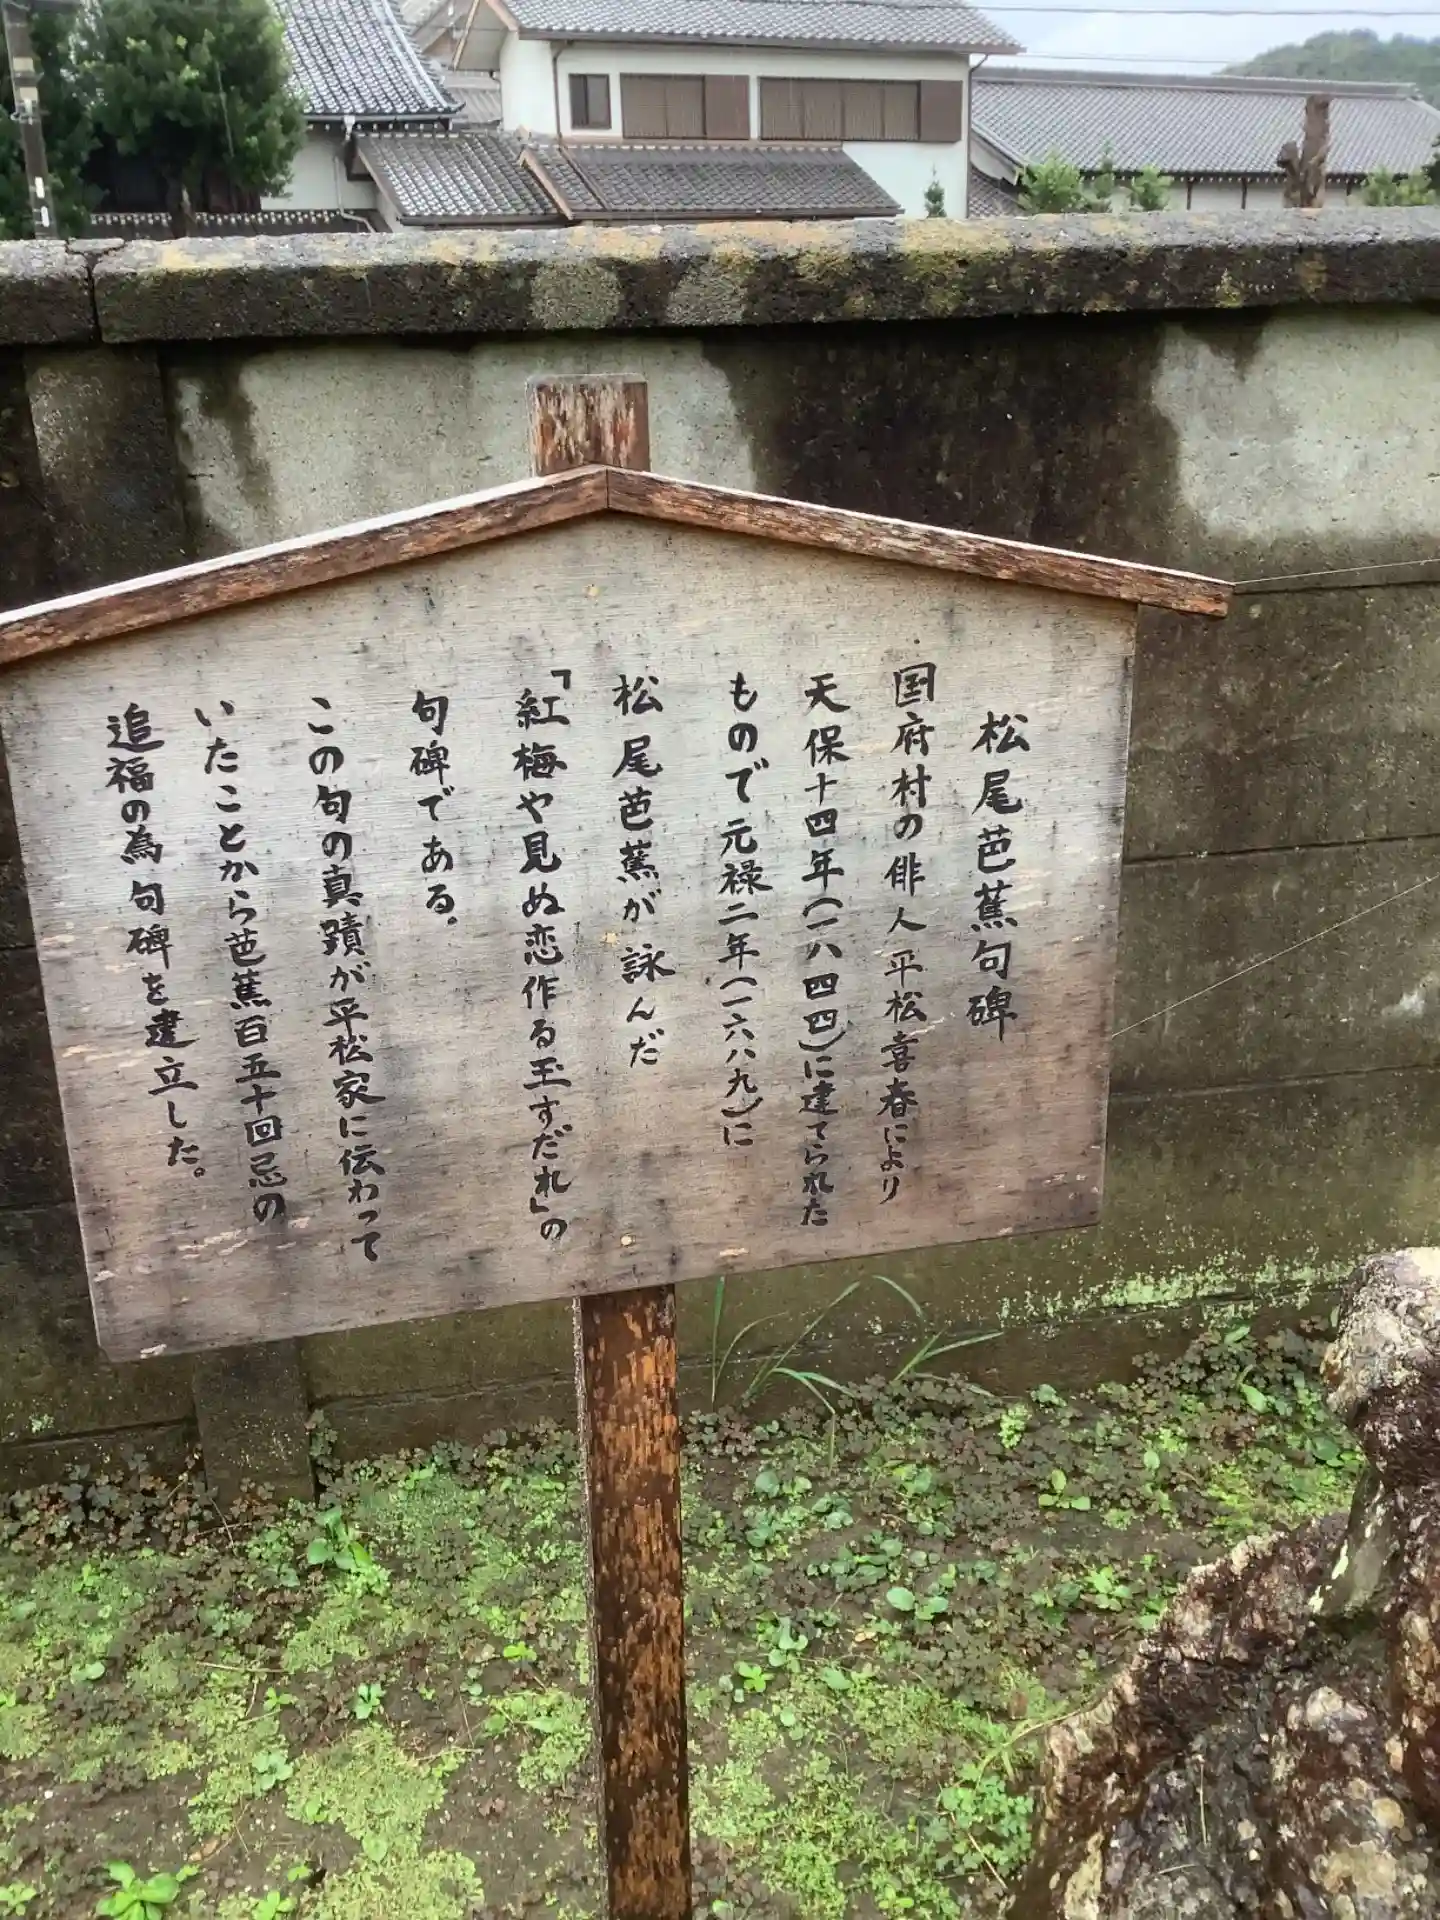 松尾芭蕉句碑
国府村の俳人平松喜春により
天保十四年(一八四四)に建てられた
もので元禄二年(一六八九)に
松尾芭蕉が詠んだ
「紅梅や見ぬ恋作る玉すだれ」の
句碑である。
この句の真蹟が平松家に伝わって
いたことから芭蕉百五十回忌の
追福の為句碑を建立した。